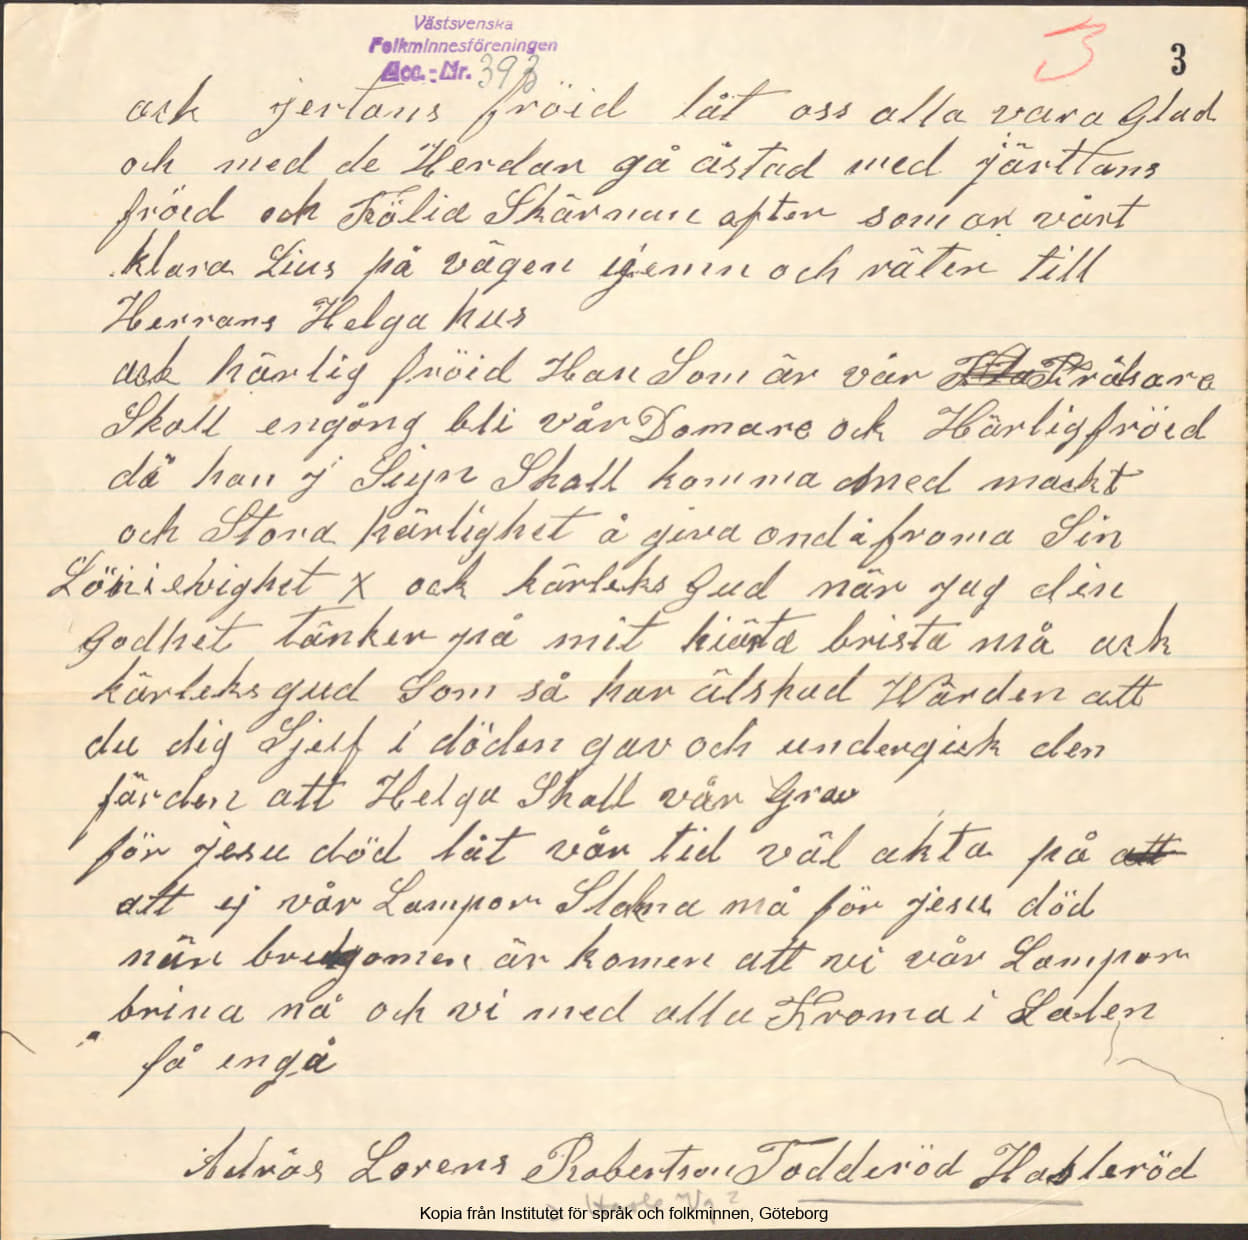 Västsvenska
Folkminnesföreningen
Acc.-Nr. 393
3
3
ack jertans fröid låt oss alla vara Glad
och med de Herdar gå åstad med järttans
fröid och Fölia Skärnan efter som ar vårt
klara Lius på vägen igemn och räten till
Herrans Helga hus
ack härlig fröid Han Som är vår Frälsare
Skall engång bli vår Domare ock Härligfröid
då han j Siyn Skall komma med mackt
och Stora härlighet å giva ond å froma Sin
Lön i evighet x ock kärleks Gud när jag din
Godhet tänker på mit hiärta brista må ack
kärleks gud Som så har älskad Wärden att
du dig Sjelf i döden gav och undergick den
färden att Helga Skall vår Grav
för jesu död låt vår tid väl akta på att
att ej vår Lampor Slakna må för jesu död
när brudgomen är komen att vi vår Lampor
brina nå och vi med alla Froma i Salen
få engå
Adräs Lorens Robertson Todderöd Hasleröd
Kopia från Institutet för språk och folkminnen, Göteborg